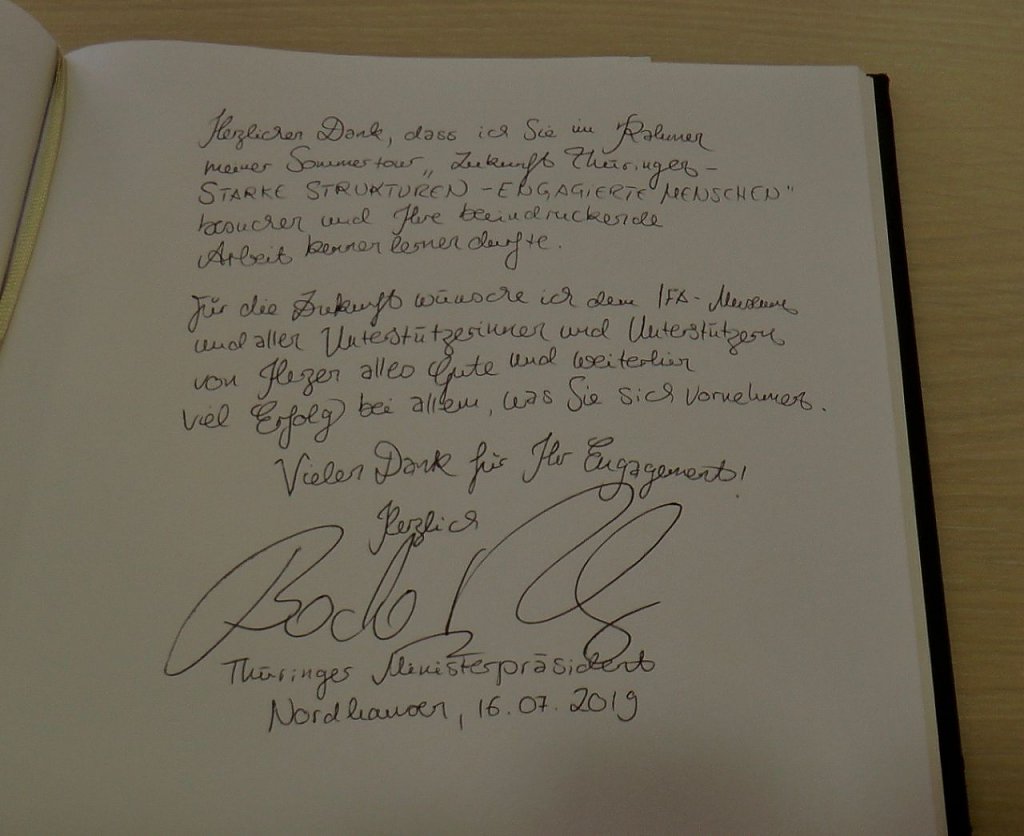 Herzlichen Dank, dass ich Sie im Rahmen
meiner Sommertour „Zukunft Thüringen -
STARKE STRUKTUREN - ENGAGIERTE MENSCHEN"
besuchen und Ihre beeindruckende
Arbeit kennenlernen durfte.
Für die Zukunft wünsche ich dem IFA-Museum
und allen Unterstützerinnen und Unterstützern
von Herzen alles Gute und weiterhin
viel Erfolg bei allem, was Sie sich vornehmen.
Vielen Dank für Ihr Engagement!
Herzlich
Bodo
Thüringer Ministerpräsident
Nordhausen, 16.07.2019